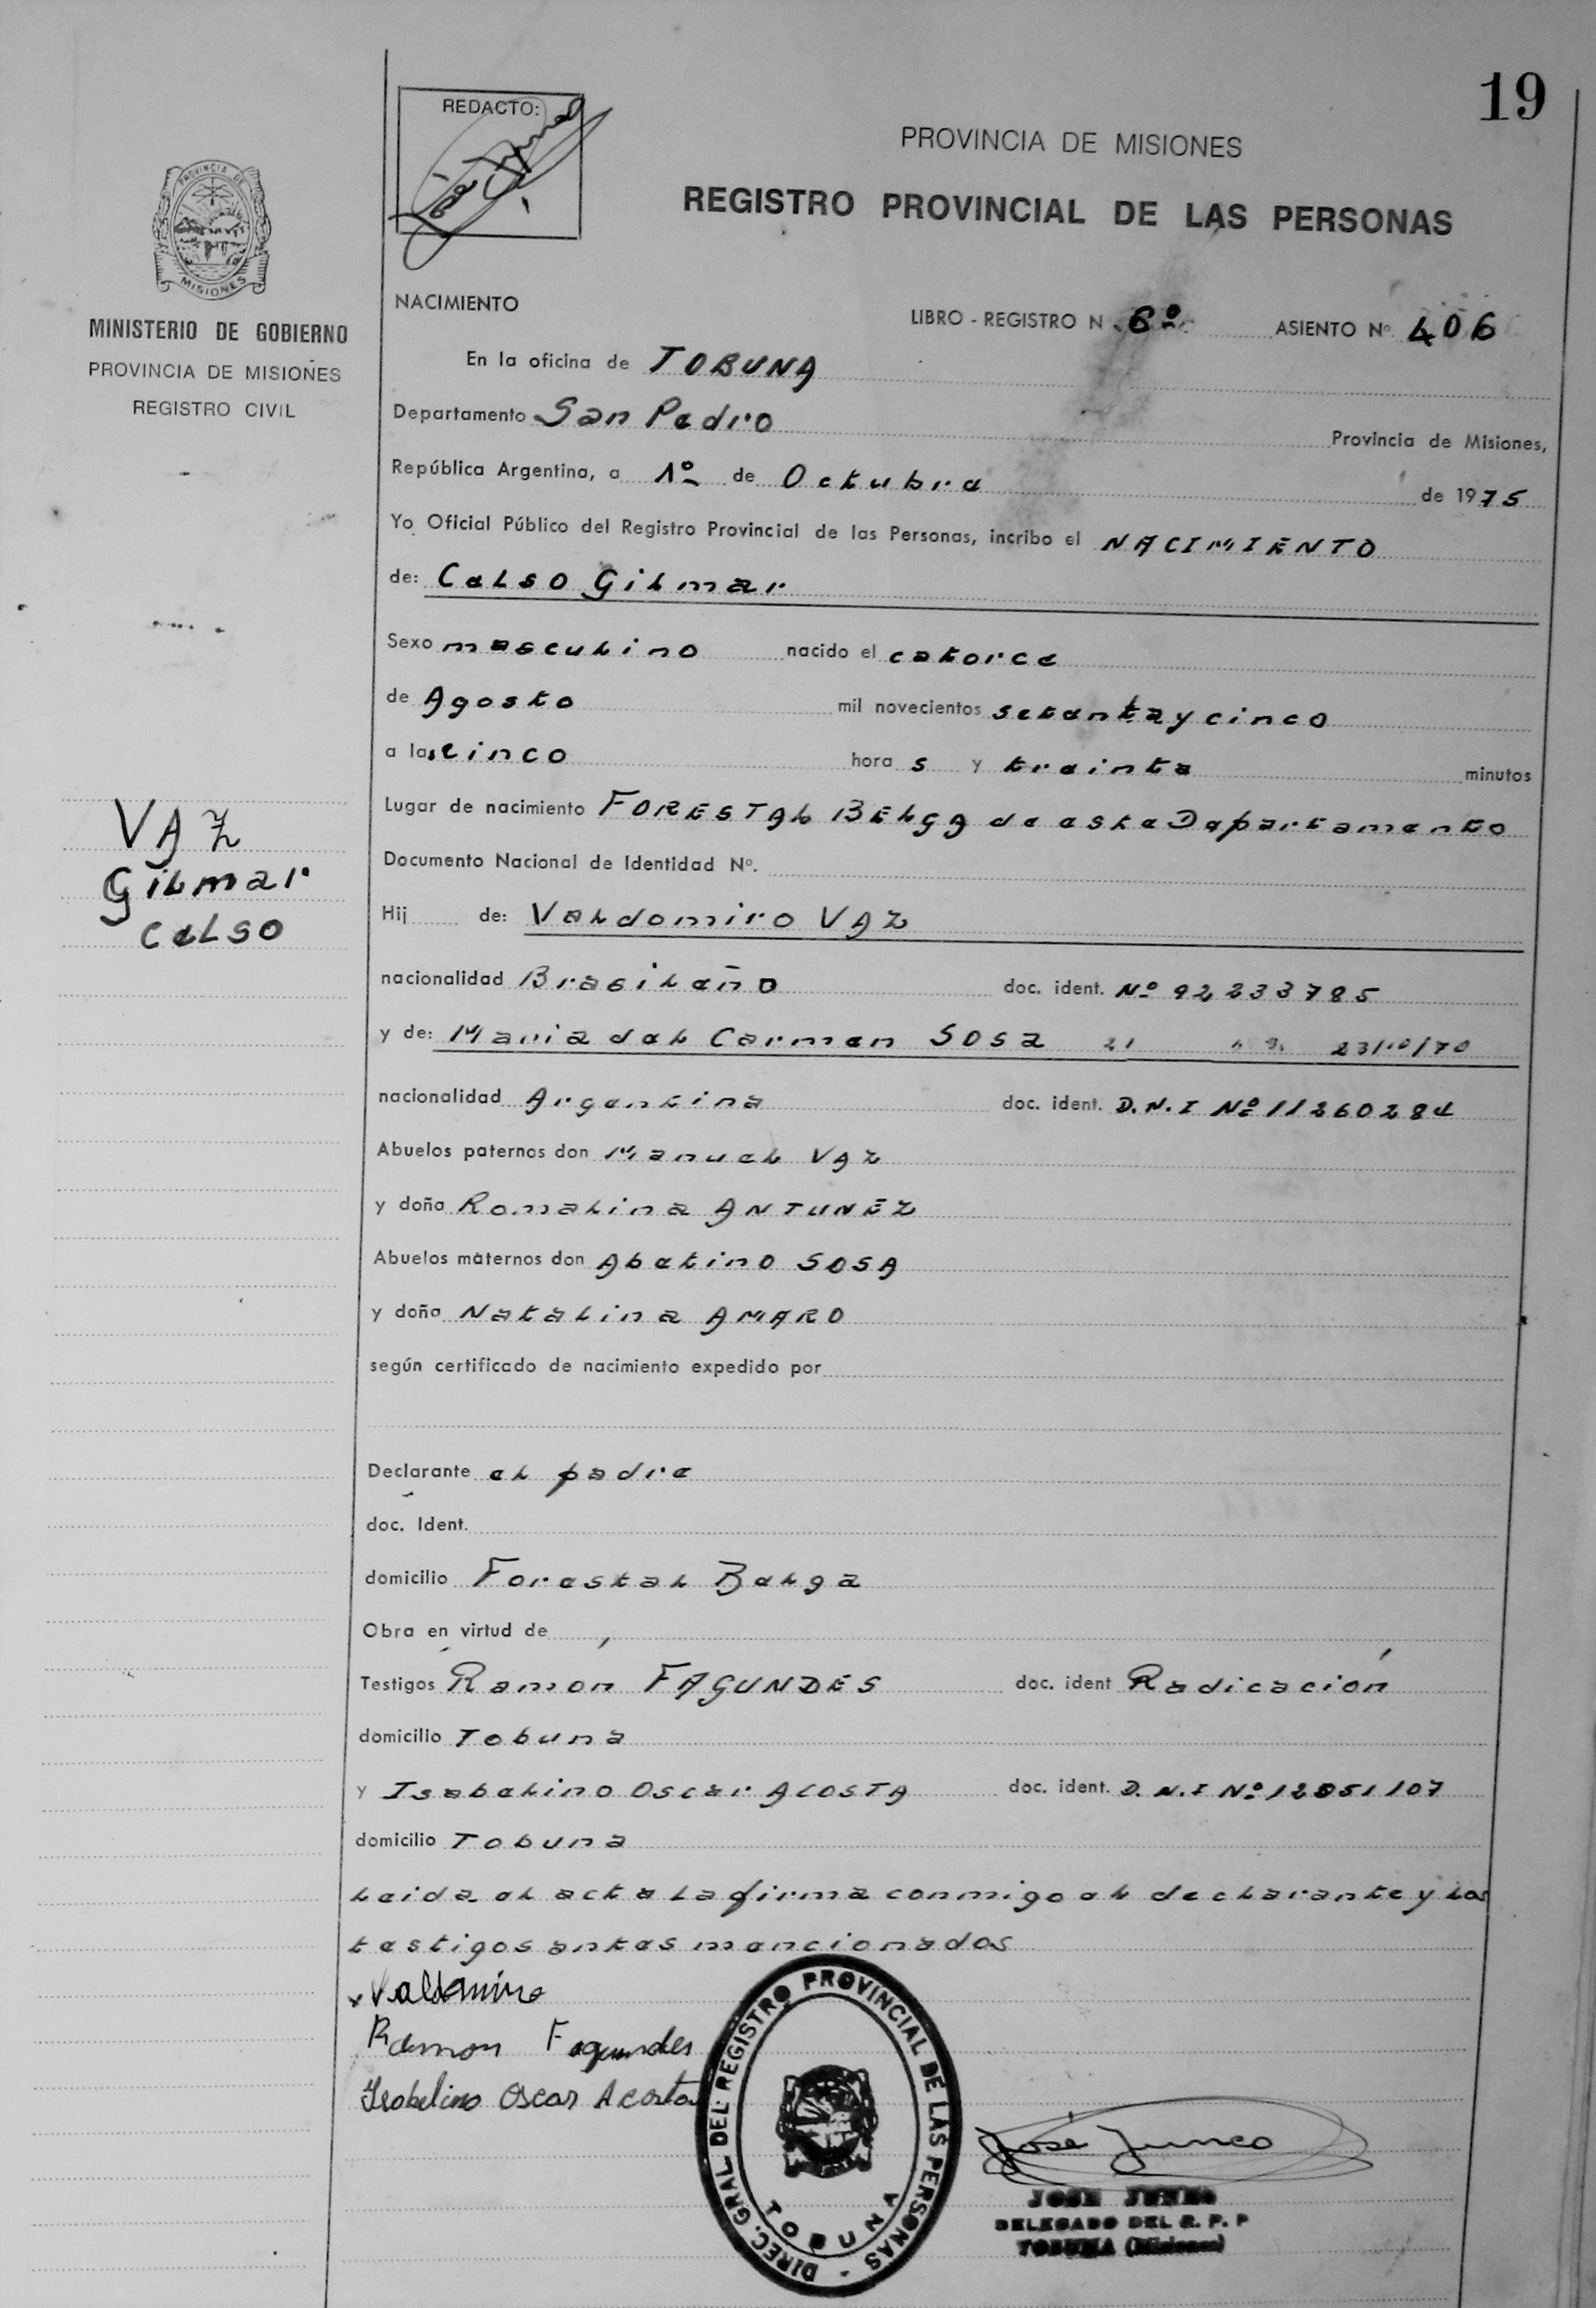 19
REDACTO:
PROVINCIA DE MISIONES
REGISTRO PROVINCIAL DE LAS PERSONAS
PROVINCIA DE
MISIONES
MINISTERIO DE GOBIERNO
PROVINCIA DE MISIONES
REGISTRO CIVIL
NACIMIENTO
LIBRO - REGISTRO N 6º ASIENTO Nº 406
En la oficina de TOBUNA
Departamento San Pedro Provincia de Misiones,
República Argentina, a 1º de Octubre de 1975
Yo Oficial Público del Registro Provincial de las Personas, incribo el NACIMIENTO
de: Celso Gilmar
Sexo masculino nacido el catorce
de Agosto mil novecientos setenta y cinco
a las cinco hora s y treinta minutos
Lugar de nacimiento FORESTAL BELGA de este Departamento
Documento Nacional de Identidad Nº.
VAZ
Gilmar
Celso
Hij de: Valdomiro VAZ
nacionalidad Brasileño doc. ident. Nº 92233785
y de: Maria del Carmen SOSA 21 23/10/70
nacionalidad Argentina doc. ident. D.N.I Nº 11260284
Abuelos paternos don Manuel VAZ
y doña Romalina ANTUNEZ
Abuelos maternos don Abetino SOSA
y doña Natalina AMARO
según certificado de nacimiento expedido por
Declarante el padre
doc. Ident.
domicilio Forestal Belga
Obra en virtud de
Testigos Ramón FAGUNDES doc. ident Radicación
domicilio Tobuna
y Isabelino Oscar ACOSTA doc. ident. D.N.I Nº 12851107
domicilio Tobuna
Leida el acta la firma conmigo el declarante y los
testigos antes mencionados
x Valdomiro
Ramon Fagundes
Isabelino Oscar Acosta
DIREC. GRAL. DEL REGISTRO PROVINCIAL DE LAS PERSONAS -
TOBUNA
José Junco
JOSE JUNCO
DELEGADO DEL R. P. P
TOBUNA (Misiones)